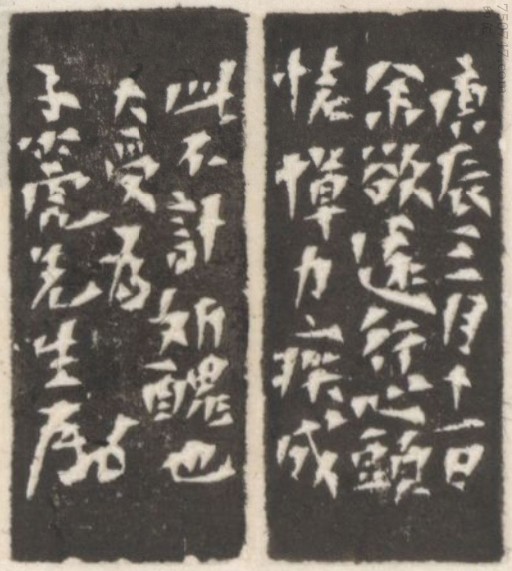 庚辰三月十一日
余欲遠行心頭
憹憚力疾成
此不計妍醜也
大受為
子寛先生存